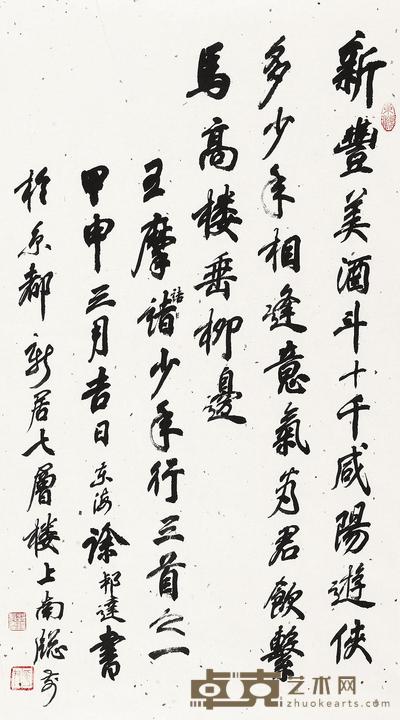 新豐美酒斗十千咸陽遊俠
多少年相逢意氣為君飲繫
馬高楼垂柳邊
王摩諸詰少年行三首之一
甲申三月吉日東海徐邦達書
於京都新居七層楼上南牕前
卓克艺术网
zhuokearts.com